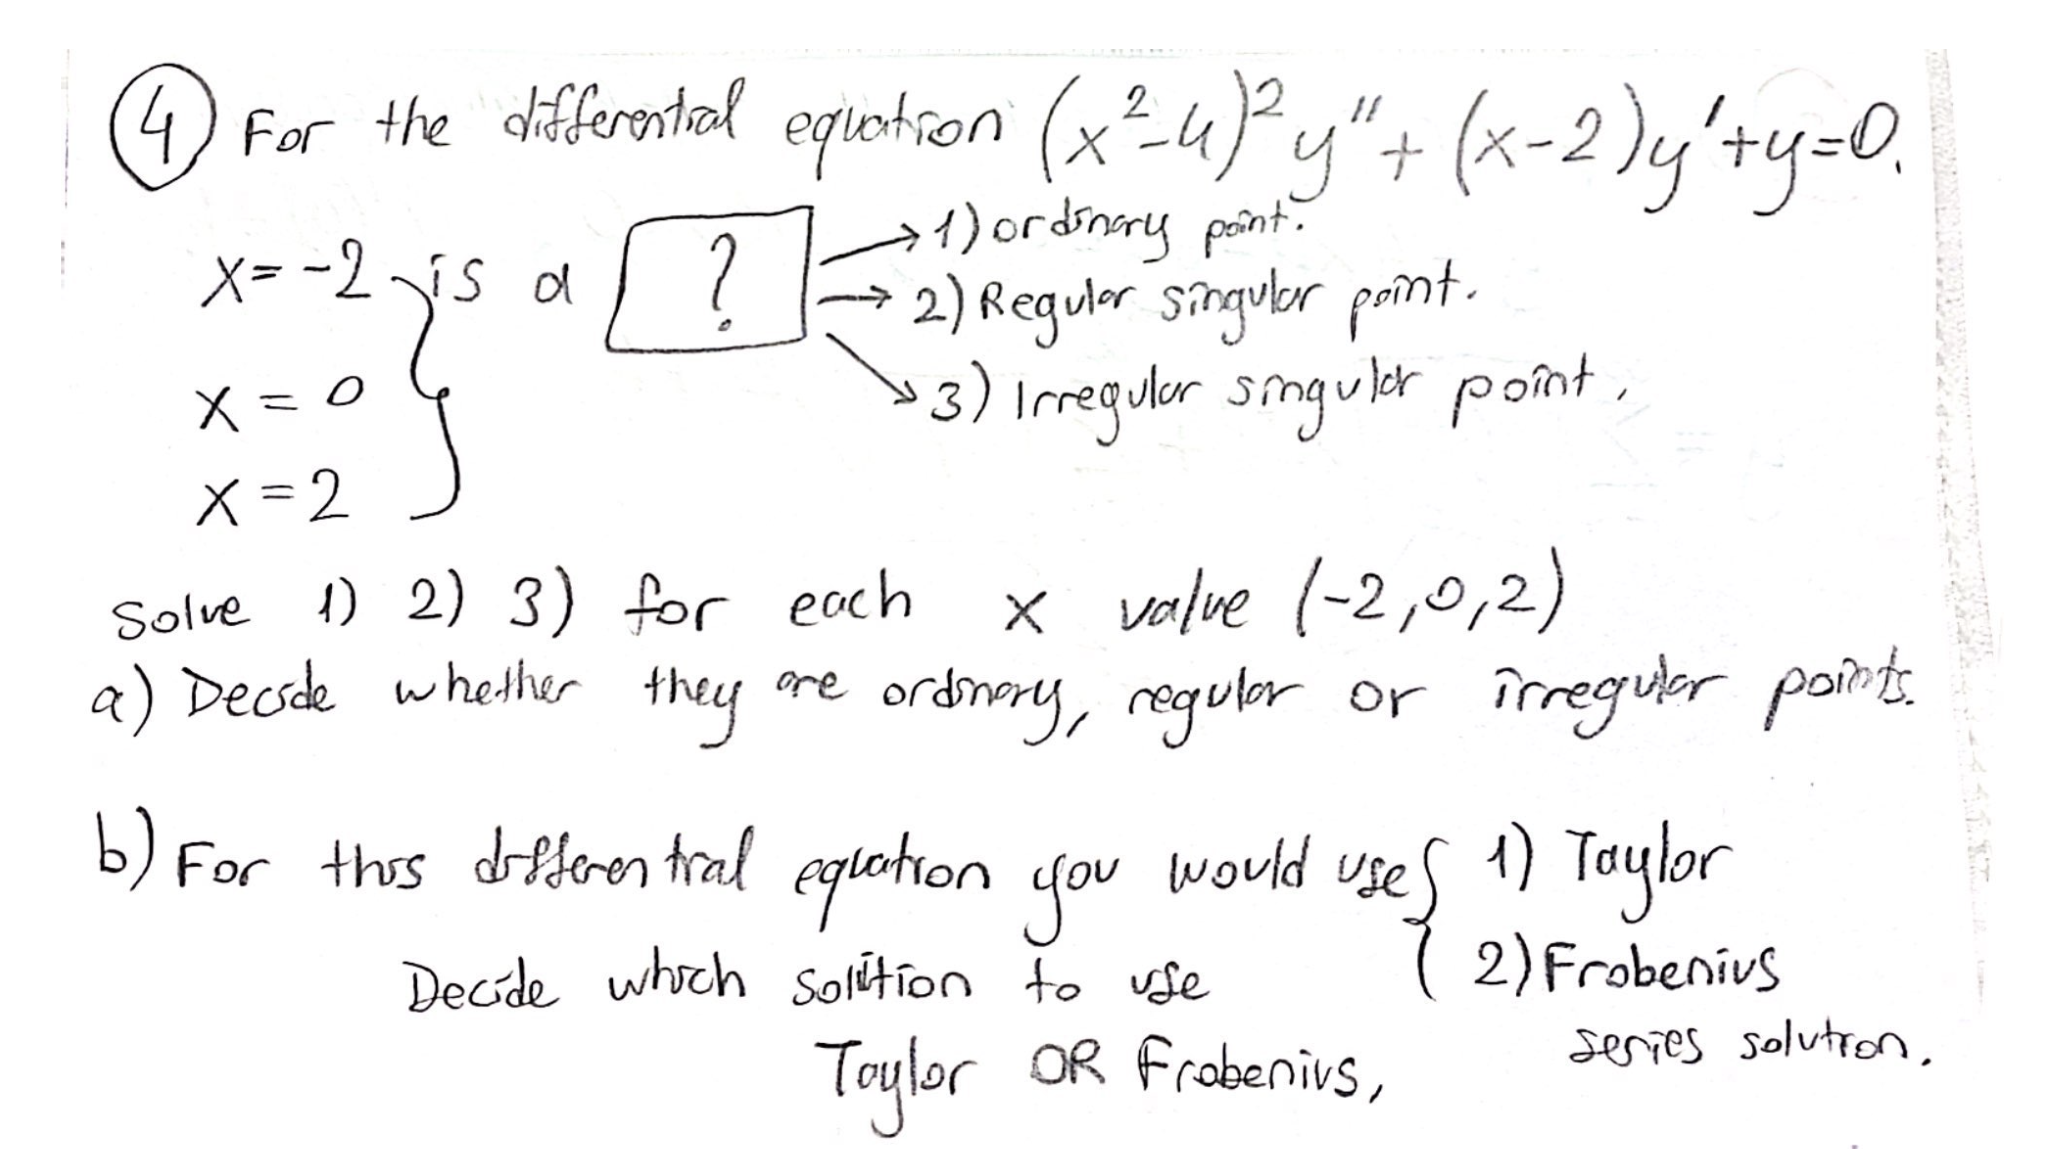 ④ For the differential equation (x²-4)²y"+(x-2)y'+y=0.
x=-2 is a ? → 1) ordinary point.
→ 2) Regular singular point.
x=0 → 3) Irregular singular point.
x=2
Solve 1) 2) 3) for each x value (-2,0,2)
a) Decide whether they are ordinary, regular or irregular points.
b) For this differential equation you would use { 1) Taylor
Decide which solution to use 2) Frobenius
Taylor OR Frobenius, series solution.